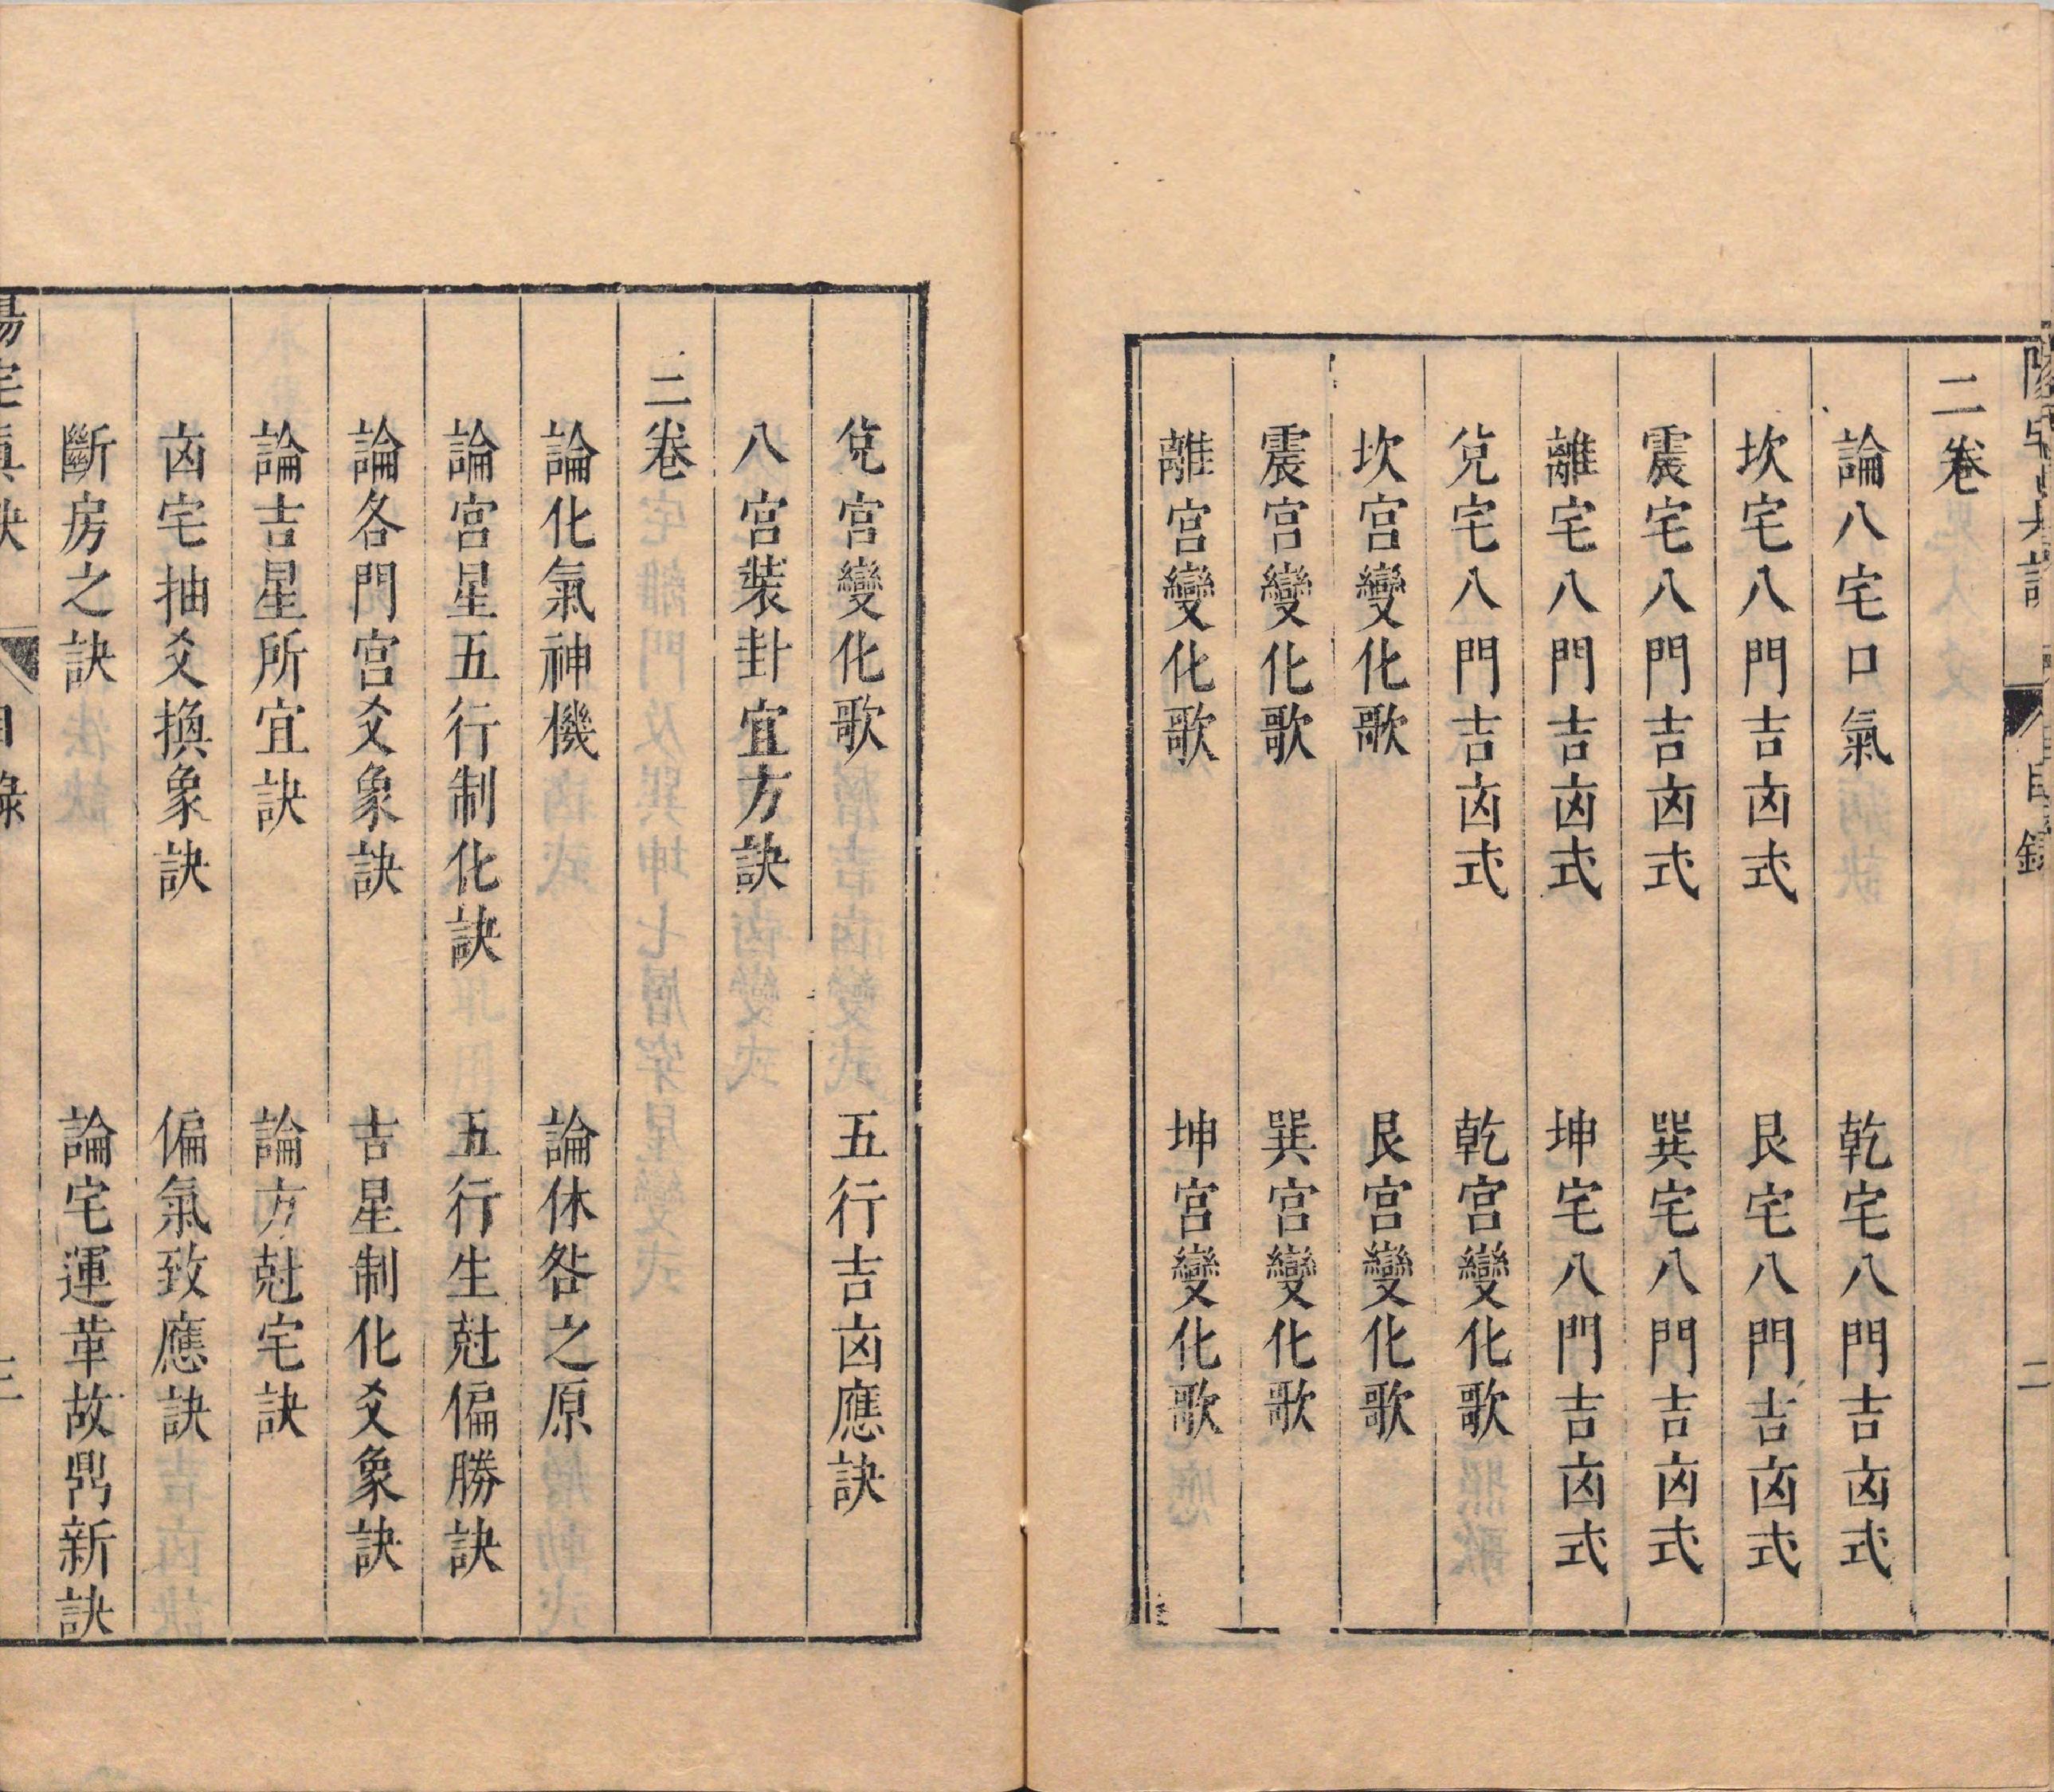 二卷
論八宅口氣　乾宅八門吉凶式
坎宅八門吉凶式　艮宅八門吉凶式
震宅八門吉凶式　巽宅八門吉凶式
離宅八門吉凶式　坤宅八門吉凶式
兌宅八門吉凶式　乾宮變化歌
坎宮變化歌　艮宮變化歌
震宮變化歌　巽宮變化歌
離宮變化歌　坤宮變化歌
兌宮變化歌　五行吉凶應訣
八宮裝卦宜方訣
三卷
論化氣神機　論休咎之原
論宮星五行制化訣　五行生尅偏勝訣
論各門宮爻象訣　吉星制化爻象訣
論吉星所宜訣　論方尅宅訣
凶宅抽爻換象訣　偏氣致應訣
斷房之訣　論宅運革故鼎新訣
目錄
三